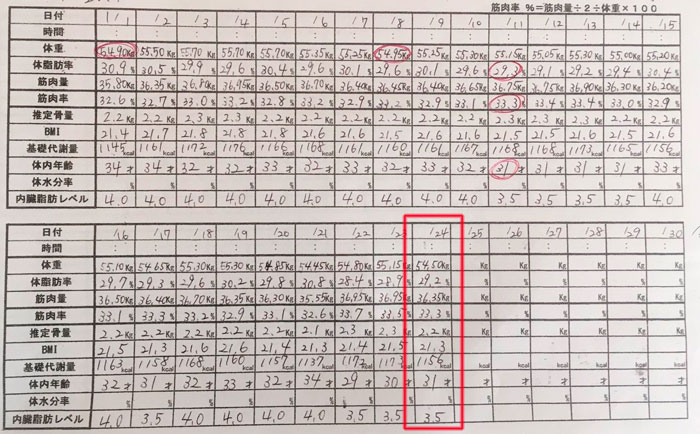 筋肉率 %=筋肉量÷2÷体重×100
日付 1/1 1/2 /3 /4 /5 /6 /7 /8 /9 /10 /11 /12 /13 /14 /15
時間 : : : : : : : : : : : : : : :
体重 54.90Kg 55.50Kg 55.70Kg 55.70Kg 55.70Kg 55.35Kg 55.25Kg 54.95Kg 55.25Kg 55.30Kg 55.15Kg 55.05Kg 55.30Kg 55.00Kg 55.20Kg
体脂肪率 30.9% 30.5% 29.9% 29.6% 30.4% 29.6% 30.1% 29.6% 30.1% 29.6% 29.3% 29.1% 29.2% 29.4% 30.4%
筋肉量 35.80Kg 36.35Kg 36.80Kg 36.95Kg 36.50Kg 36.70Kg 36.40Kg 36.45Kg 36.40Kg 36.65Kg 36.75Kg 36.75Kg 36.90Kg 36.30Kg 36.20Kg
筋肉率 32.6% 32.7% 33.0% 33.2% 32.8% 33.2% 32.9% 33.2% 32.9% 33.1% 33.3% 33.4% 33.4% 33.0% 32.9%
推定骨量 2.2Kg 2.2Kg 2.3Kg 2.3Kg 2.2Kg 2.2Kg 2.2Kg 2.2Kg 2.2Kg 2.2Kg 2.3Kg 2.3Kg 2.3Kg 2.2Kg 2.2Kg
BMI 21.4 21.7 21.8 21.8 21.8 21.6 21.6 21.5 21.6 21.6 21.5 21.5 21.6 21.5 21.6
基礎代謝量 1145kcal 1161kcal 1172kcal 1176kcal 1166kcal 1168kcal 1161kcal 1160kcal 1161kcal 1167kcal 1168kcal 1168kcal 1173kcal 1165kcal 1156kcal
体内年齢 34才 34才 32才 32才 33才 32才 33才 32才 33才 32才 31才 31才 31才 31才 33才
体水分率 % % % % % % % % % % % % % % %
内臓脂肪レベル 4.0 4.0 4.0 4.0 4.0 4.0 4.0 4.0 4.0 4.0 3.5 3.5 3.5 3.5 4.0
日付 1/16 1/17 1/18 1/19 1/20 1/21 1/22 1/23 1/24 1/25 1/26 1/27 1/28 1/29 1/30
時間 : : : : : : : : : : : : : : :
体重 55.10Kg 54.65Kg 55.30Kg 55.30Kg 54.85Kg 54.45Kg 54.80Kg 55.15Kg 54.50Kg Kg Kg Kg Kg Kg Kg
体脂肪率 29.7% 29.3% 29.6% 30.2% 29.8% 30.8% 28.4% 28.9% 29.2% % % % % % %
筋肉量 36.50Kg 36.40Kg 36.70Kg 36.35Kg 36.30Kg 35.55Kg 36.95Kg 36.95Kg 36.35Kg Kg Kg Kg Kg Kg Kg
筋肉率 33.1% 33.3% 33.2% 32.9% 33.1% 32.6% 33.7% 33.5% 33.3% % % % % % %
推定骨量 2.2Kg 2.2Kg 2.2Kg 2.2Kg 2.2Kg 2.1Kg 2.3Kg 2.3Kg 2.2Kg Kg Kg Kg Kg Kg Kg
BMI 21.5 21.3 21.6 21.6 21.4 21.3 21.4 21.5 21.3
基礎代謝量 1163kcal 1158kcal 1168kcal 1160kcal 1157kcal 1137kcal 1172kcal 1173kcal 1156kcal kcal kcal kcal kcal kcal kcal
体内年齢 32才 31才 32才 33才 32才 34才 29才 30才 31才 才 才 才 才 才 才
体水分率 % % % % % % % % % % % % % % %
内臓脂肪レベル 4.0 3.5 4.0 4.0 4.0 4.0 3.5 3.5 3.5